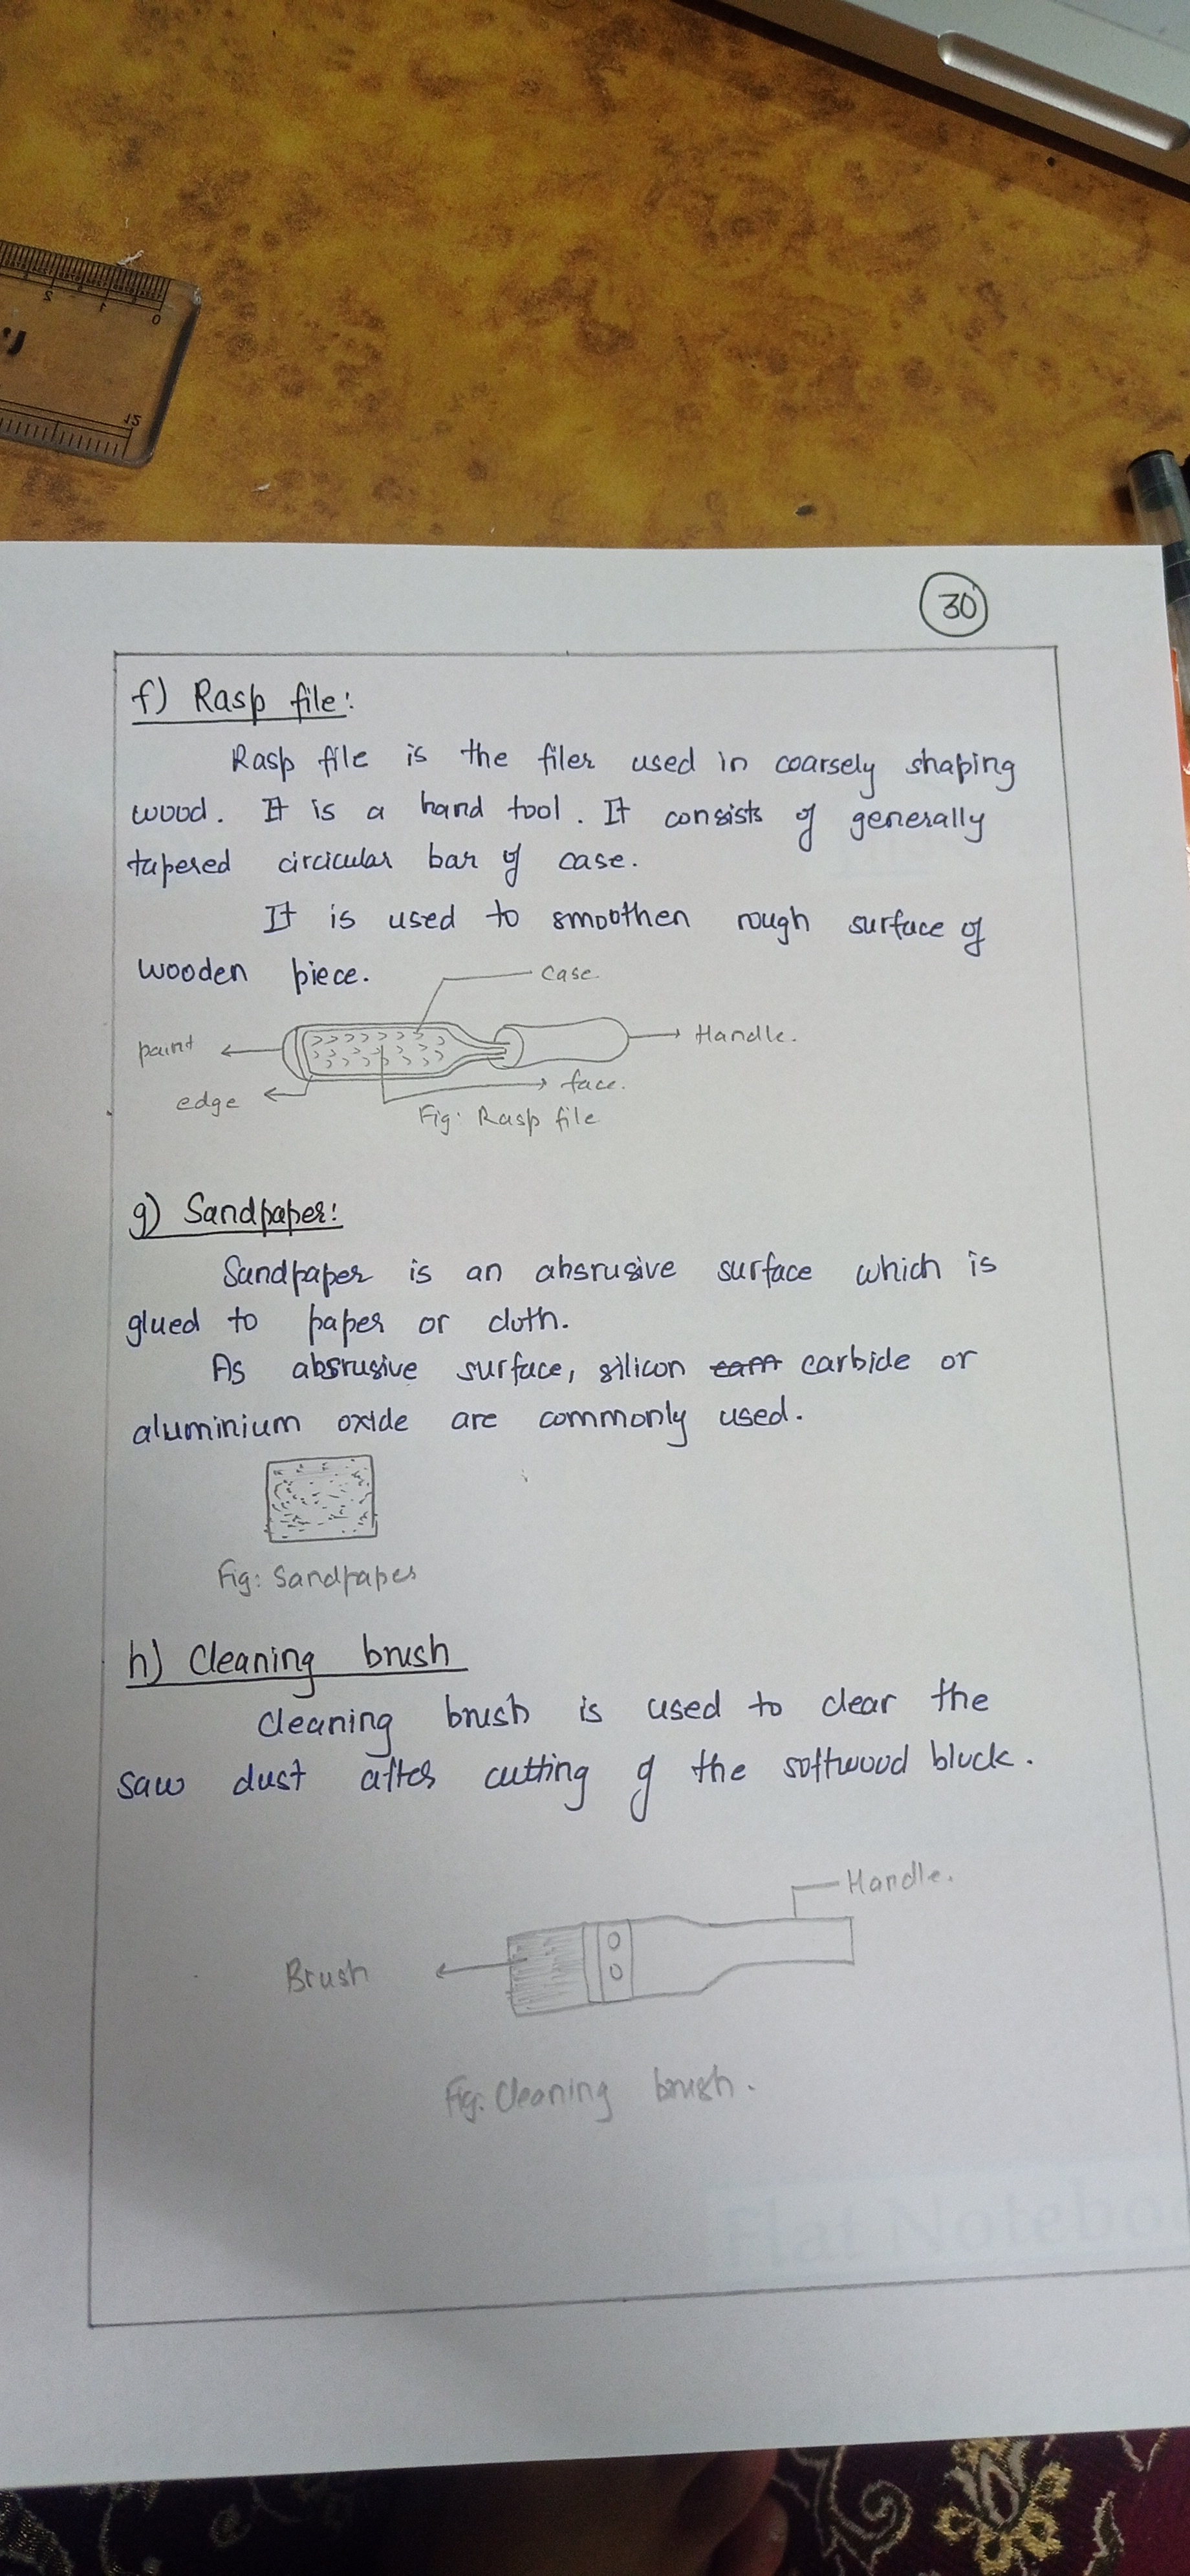 30
f) Rasp file:
Rasp file is the filer used in coarsely shaping
wood. It is a hand tool. It consists of generally
tapered circicular bar of case.
It is used to smoothen rough surface of
wooden piece.
case.
paint
Handle.
edge
face.
Fig: Rasp file
g) Sandpaper:
Sandpaper is an absrusive surface which is
glued to paper or cloth.
As absrusive surface, silicon carbide or
aluminium oxide are commonly used.
Fig: Sandpaper
h) Cleaning brush
Cleaning brush is used to clear the
saw dust after cutting of the softwood block.
Handle.
Brush
Fig. Cleaning brush.
Flat Notebo
0 1 2
15